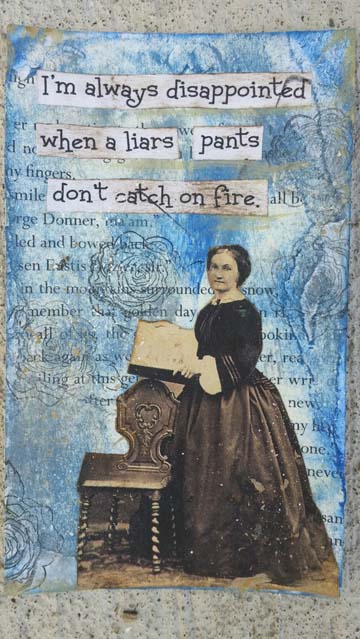 I'm always disappointed
when a liars pants
don't catch on fire.
my fingers.
smile all be
rge Donner, ma'am."
led and bowed back
sen Eastis
in the mountains surrounded snow,
member that golden day
all of us, the
back again as we er, rea
iling at this ger wri
after new
my
one.
neve